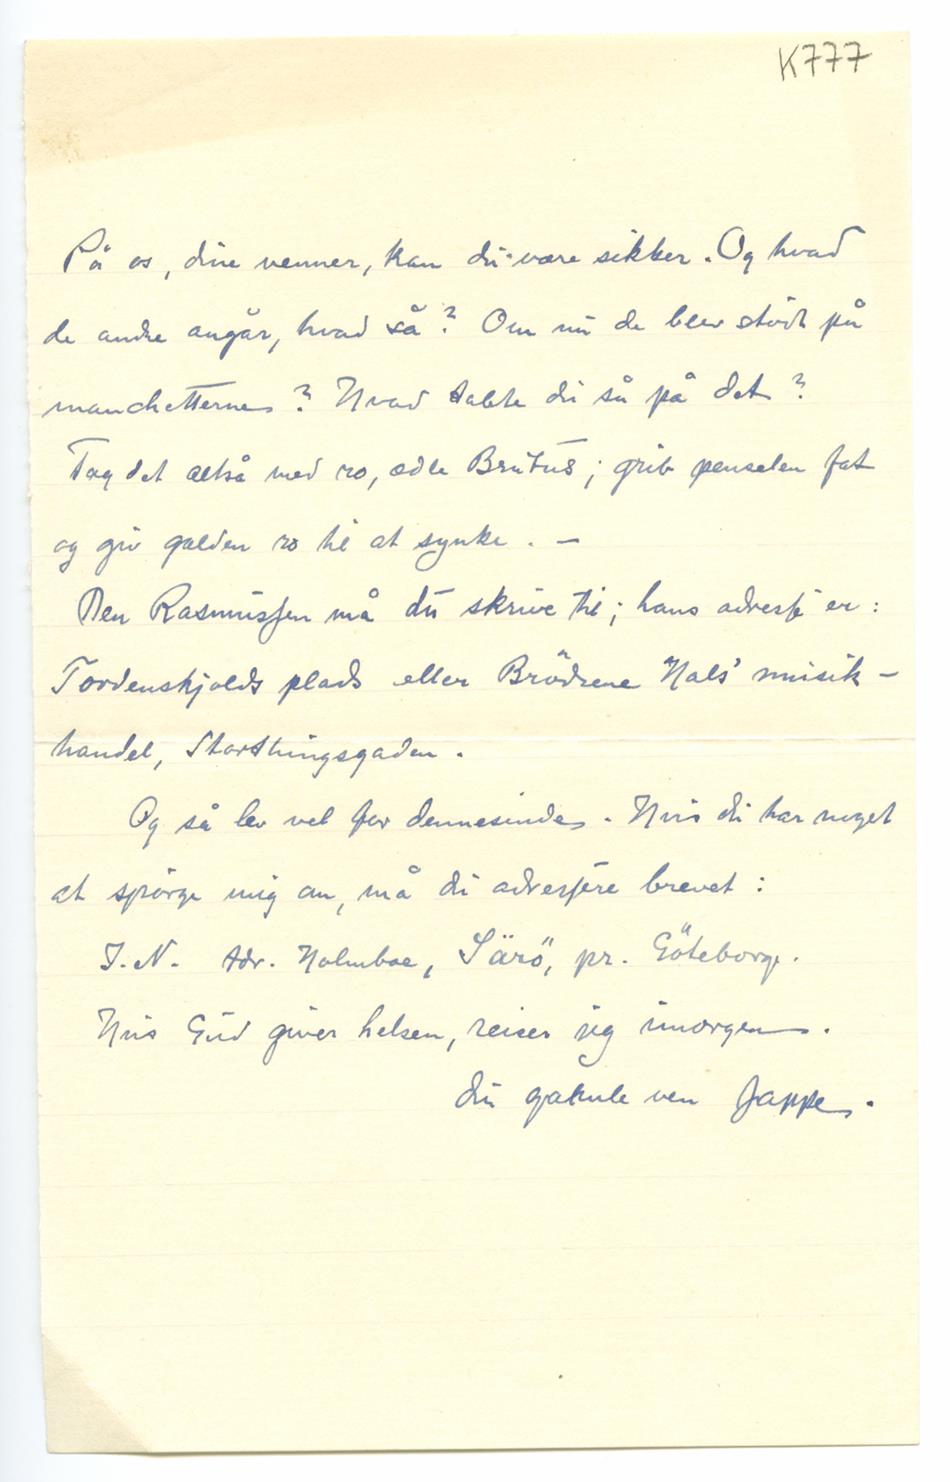 K777
På os, dine venner, kan du være sikker. Og hvad
de andre angår, hvad så? Om nu de blev stödt på
manchetterne? Hvad tabte du så på det?
Tag det altså med ro, ædle Brutus; grib penselen fat
og giv galden ro til at synke. –
Den Rasmussen må du skrive til; hans adresse er:
Tordenskjolds plads eller Brödrene Hals' musik-
handel, Storthingsgaden.
Og så lev vel for dennesinde. Hvis du har noget
at spörge mig om, må du adressere brevet:
J. N. Adr. Holmboe, Särö, pr. Göteborg.
Hvis Gud giver helsen, reiser jeg imorgen.
din gamle ven Jappe.